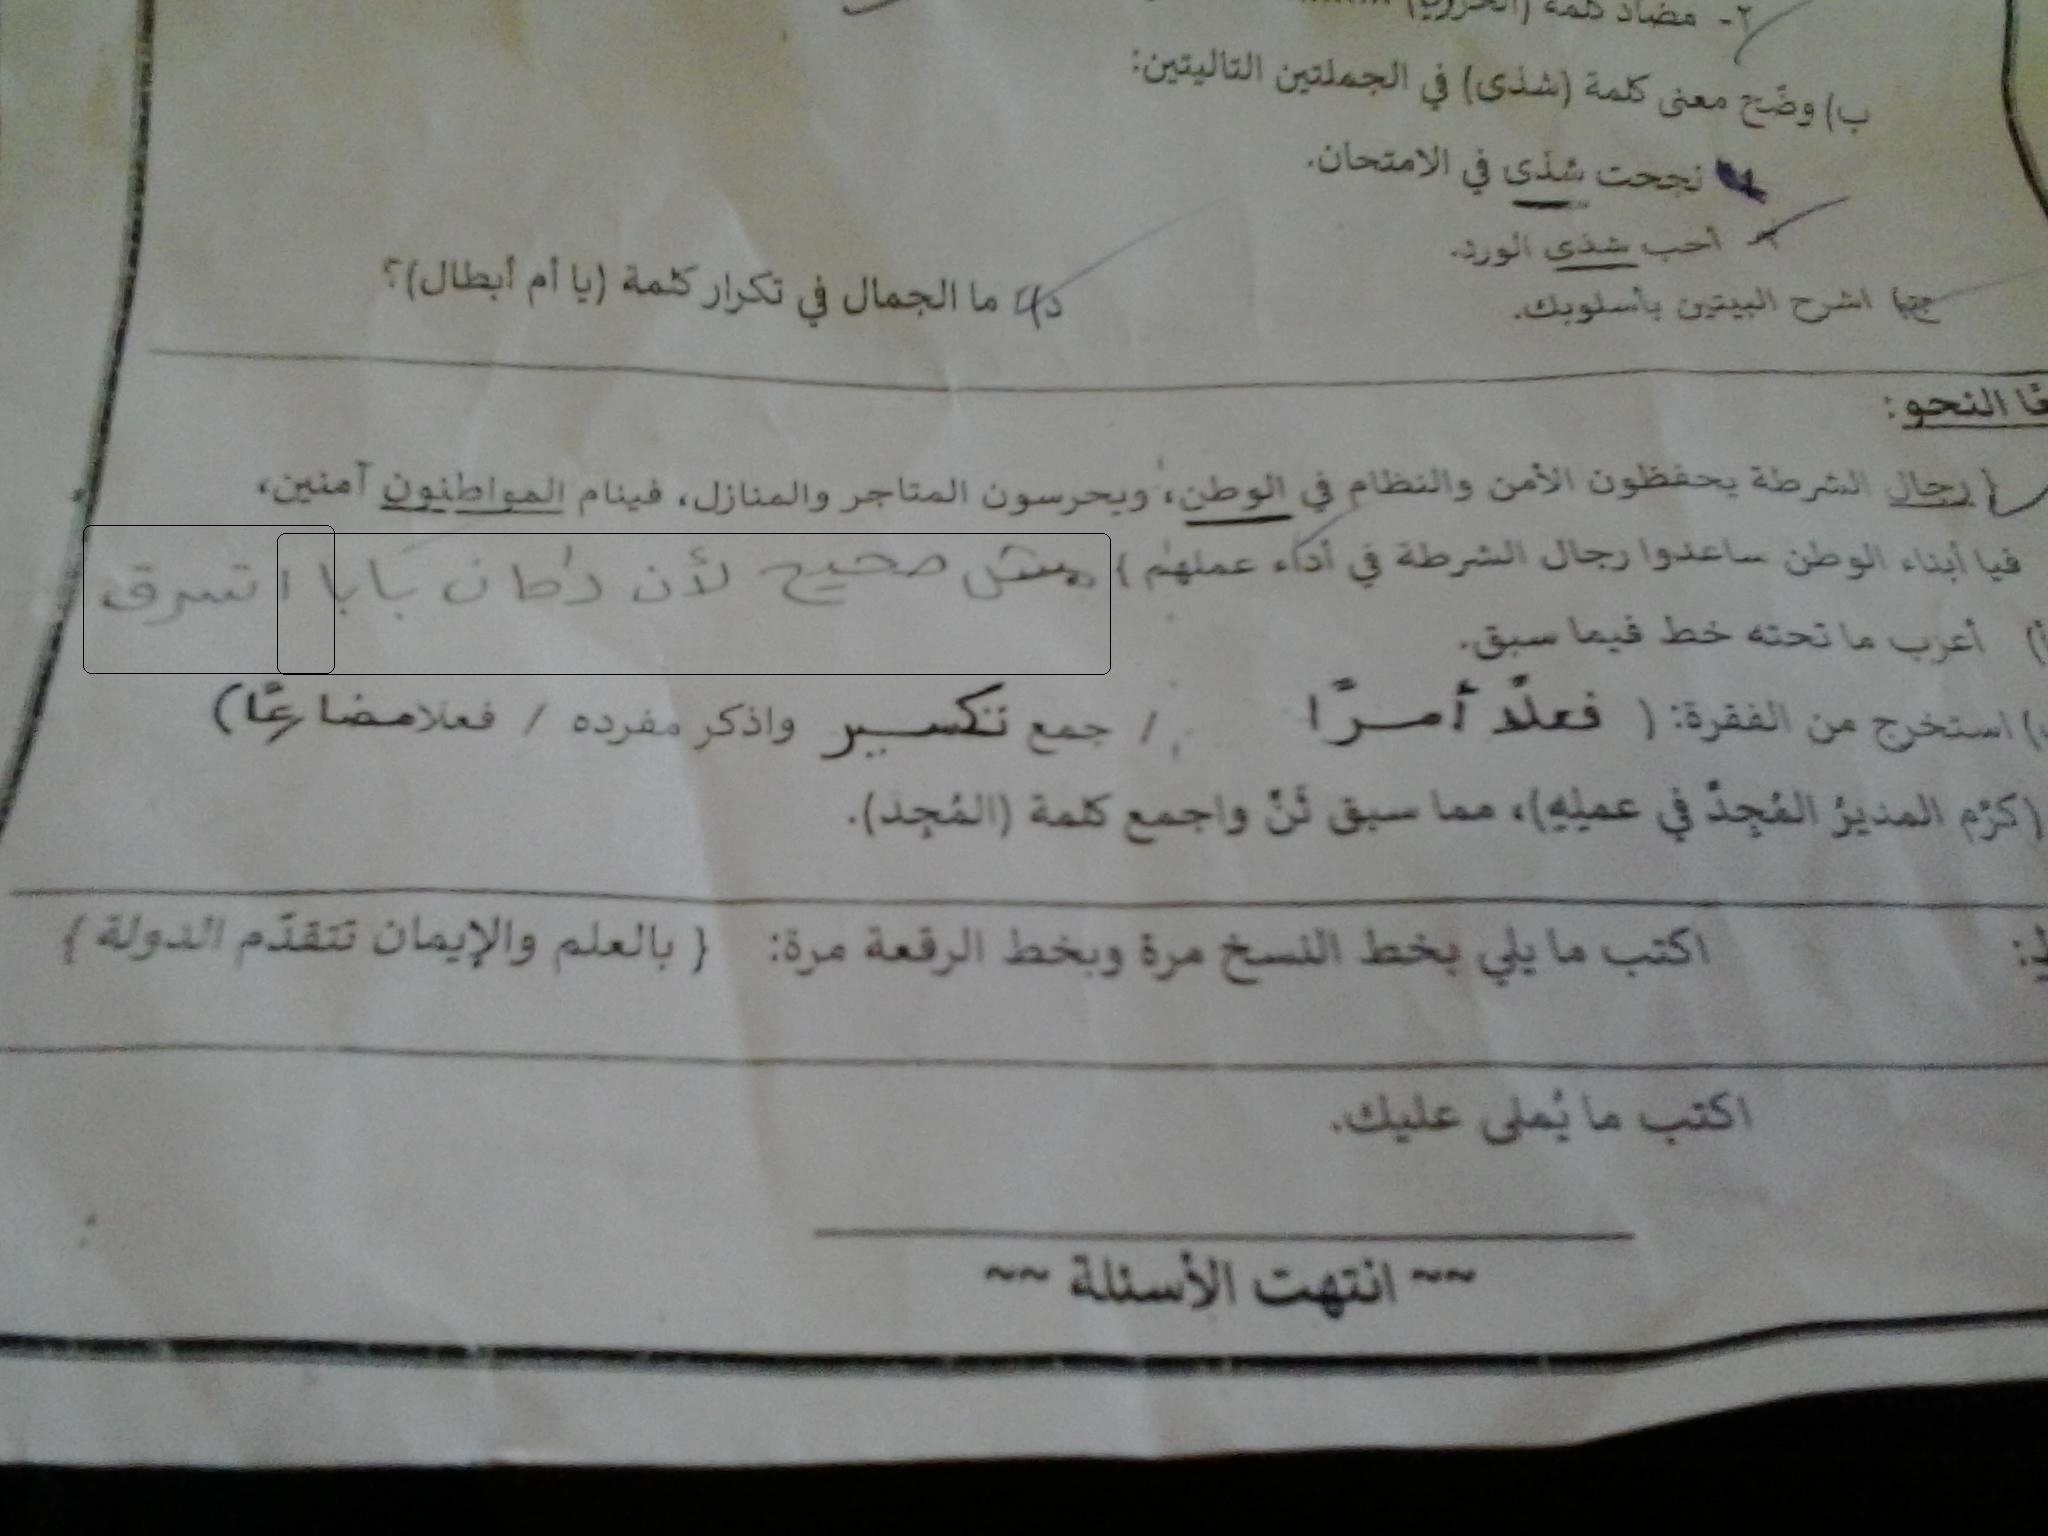 ٢- مضاد كلمة
ب) وضّح معنى كلمة (شذى) في الجملتين التاليتين:
نجحت شذى في الامتحان.
أحب شذى الورد.
ج) اشرح البيتين بأسلوبك.
د) ما الجمال في تكرار كلمة (يا أم أبطال)؟
النحو:
{ رجال الشرطة يحفظون الأمن والنظام في الوطن، ويحرسون المتاجر والمنازل، فينام المواطنون آمنين،
فيا أبناء الوطن ساعدوا رجال الشرطة في أداء عملهم } مش صحيح لأن دكان بابا اتسرق
أ) أعرب ما تحته خط فيما سبق.
استخرج من الفقرة: ( فعلًا أمرًا / جمع تكسير واذكر مفرده / فعلا مضارعًا)
(كرّم المديرُ المُجِدَّ في عملِهِ)، مما سبق ثَنِّ واجمع كلمة (المُجِد).
اكتب ما يلي بخط النسخ مرة وبخط الرقعة مرة: { بالعلم والإيمان تتقدّم الدولة }
اكتب ما يُملى عليك.
~~ انتهت الأسئلة ~~